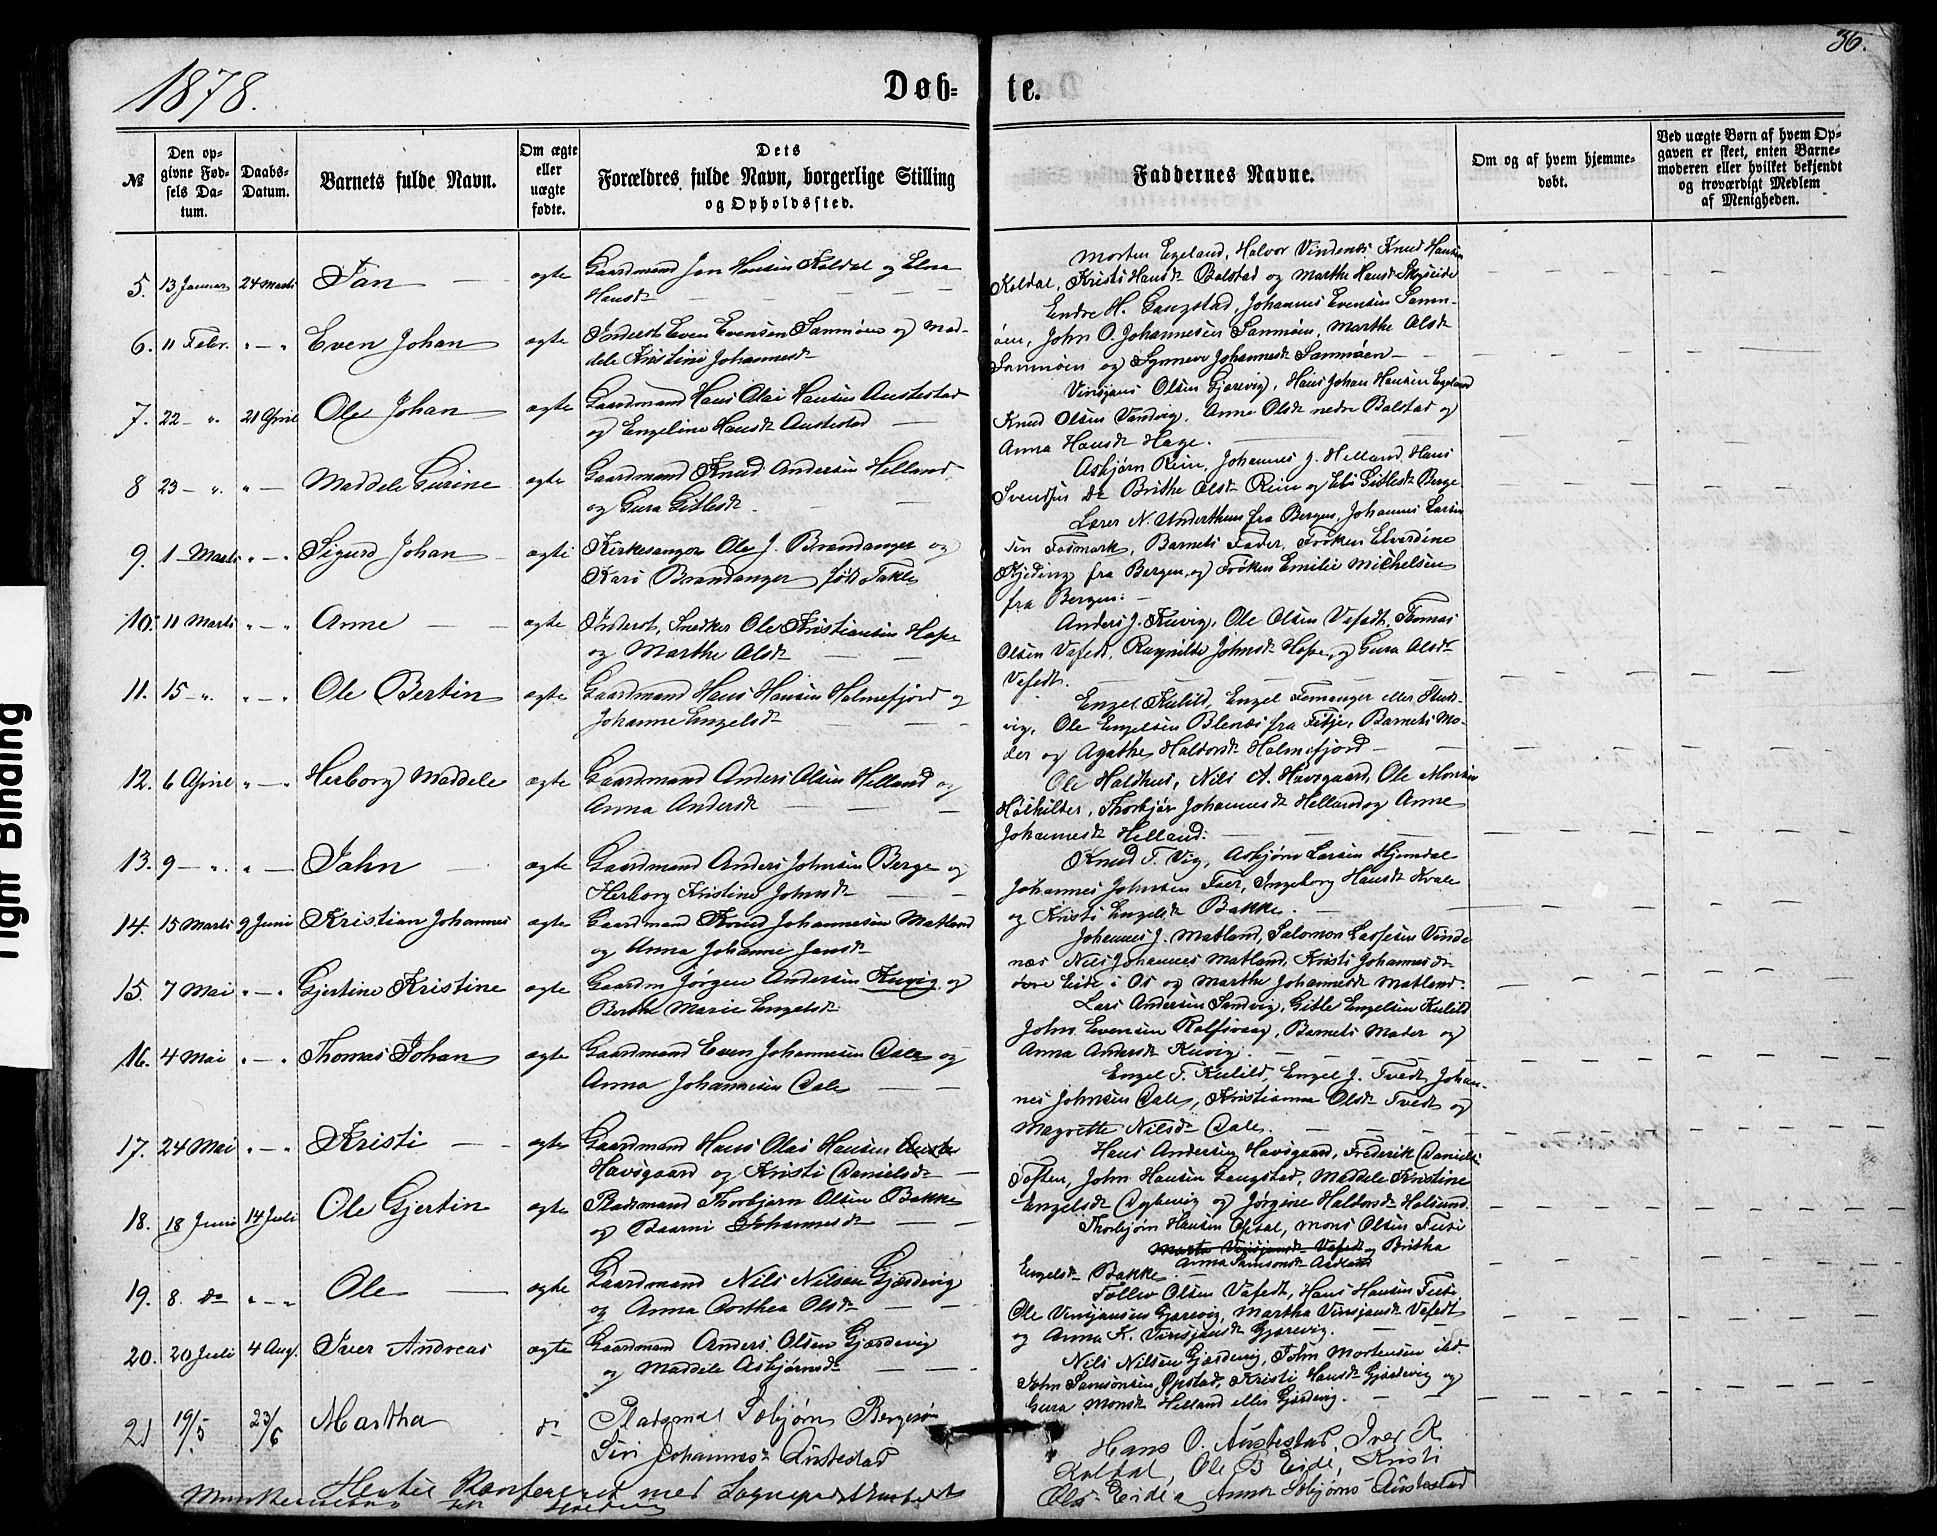 36.
1878.
Døb-te.
№
Den opgivne Fødsels Datum.
Daabs-Datum.
Barnets fulde Navn.
Om ægte eller uægte fødte.
Dets Forældres fulde Navn, borgerlige Stilling og Opholdssted.
Faddernes Navne.
Om og af hvem hjemmedøbt.
Ved uægte Børn af hvem Opgaven er skeet, enten Barnemoderen eller hvilket bekjendt og troværdigt Medlem af Menigheden.
5. 13 Januar 24 Marts Jan ægte Gaardmand Jan Hansen Koldal og
Hansdt
Morten Egeland, Halvor Vindenes, Knud Hansen
Koldal, Kristi Hansdt Balstad og Marthe Hansdt Skjeseide
6. 11 Febr. " — " Even Johan ægte Inderst Even Evensen Sanmøen og Mad-
dele Kristine Johannesdt
Endre H. Gangstad, Johannes Evensen Sanm-
øen, John O. Johannesen Sanmøen, Marthe Olsdt
Sanmøen og Synneve Johannesdt Sanmøen
7. 22 — " 21 April Ole Johan ægte Gaardmand Hans Olai Hansen Austestad
og Engeline Hansdt Austestad
Vinsjans Olsen Gjærevig, Hans Johan Hansen Egeland
Knud Olsen Vandvig, Anne Olsdt nedre Balstad og
Anna Hansdt Hage.
8 23 — " " — Maddele Gurine ægte Gaardmand Knud Andersen Helland
og Gura Gitlesdt
Asbjørn Rein, Johannes J. Helland, Hans
Svendsen do Brithe Olsdt Rein og Gitlesdt Berge
9. 1 Marts " — " Sigurd Johan ægte Kirkesanger Ole J. Brandanger og
Kari Brandanger født Takle
Lærer N. Underthun fra Bergen, Johannes Larsen
Fosmark, Barnets Fader, Frøken Elverdine
Kjeding fra Bergen og Frøken Emilie Michelsen
fra Bergen.
10. 11 Marts " — " Anne ægte Inderst, Snedker Ole Kristiansen Hope
og Marthe Olsdt
Anders J. Kuvig, Ole Olsen Vefedt, Thomas
Olsen Vefedt, Ragnilde Johnsdt Hope, og Gura Olsdt
Vefedt.
11. 15 — " " — " Ole Bertin ægte Gaardmand Hans Hansen Holmefjord og
Johanne Engelsdt
Engel Kulild, Engel Femanger eller Stud-
vig, Ole Engelsen Blenæs fra Fitje, Barnets Mo-
der og Agathe Haldorsdt Holmefjord
12. 6 April " — " Herborg Maddele ægte Gaardmand Anders Olsen Helland og
Anna Andersdt
Ole Haldhus, Nils A. Havsgaard, Ole Monsen
Høshilder, Thorbjør Johannesdt Helland og Anne
Johannesdt Helland.
13. 9 — " " — John ægte Gaardmand Anders Johnsen Berge og
Herborg Kristine Johnsdt
Knud T. Vig, Asbjørn Larsen Hjemdal
Johannes Johnsen Foer, Ingeborg Hansdt Kvale
og Kristi Engelsdt Bakke.
14. 15 Marts 9 Juni Kristian Johannes ægte Gaardmand Knud Johannesen Matland
og Anna Johanne Jansdt
Johannes J. Matland, Salomon Lassesen Vinde
næs Nils Johannes Matland, Kristi Johannesdt
øvre Eide i Os og Marthe Johannesdt Matland.
15. 7 Mai " — " Gjertine Kristine ægte Gaardm Jørgen Andersen Kuvig og
Berthe Marie Engelsdt
Lars Andersen Sandvig, Gitle Engelsen Kulild
John Evensen Rolfsvaag, Barnets Moder og
Anna Andersdt Kuvig.
16. 4 Mai " — " Thomas Johan ægte Gaardmand Even Johannesen Dale og
Anna Johannesen Dale
Engel T. Kulild, Engel J. Tvedt, Johan-
nes Johnsen Dale, Kristianna Olsdt Tvedt og
Magrette Nilsdt Dale.
17. 24 Mai " — " Kristi ægte Gaardmand Hans Olai Hansen
Havsgaard og Kristi Danielsdt
Hans Andersen Havsgaard, Frederik Daniels
Toften, John Hansen Gangstad, Maddele Kristine
Engelsdt Dybevig og Jørgine Haldorsdt Holsund.
18. 18 Juni 14 Juli Ole Gjertin ægte Pladsmand Thorbjørn Olsen Bakke
og Baarni Johannesdt
Thorbjørn Hansen Opdal, Mons Olsen Tuti
Marta Vinsjansdt Vefedt og Britha
Anna Samsonsdt Aadland
Engelsdt Bakke.
19. 8. do " — " Ole ægte Gaardmand Nils Nilsen Gjærdevig
og Anna Dorthea Olsdt
Tollev Olsen Vefedt, Hans Hansen Tuti,
Ole Vinsjansen Gjærevig, Martha Vinsjansdt Vefedt
og Anna K. Vinsjansdt Gjærevig.
20. 20 Juli 4 Aug. Iver Andreas ægte Gaardmand Anders Olsen Gjærdevig
og Maddele Asbjørnsdt
Nils Nilsen Gjærdevig, John Mortensen ibd.
John Samsonsen Opstad, Kristi Hansdt Gjærdevig og
Gura Monsdt Helland eller Gjærdevig.
21 19/5 23/6 Martha do Pladsmd Torbjørn Bergesøn
Siri Johannesdt Austestad
Hans O. Austestad, Iver K
Koldal, Ole B Eide, Kristi
Olsdt Eide, Anna Torbjørnsdt Austestad
Hertil Konfereret med Sogneprestembedet
Tight Binding